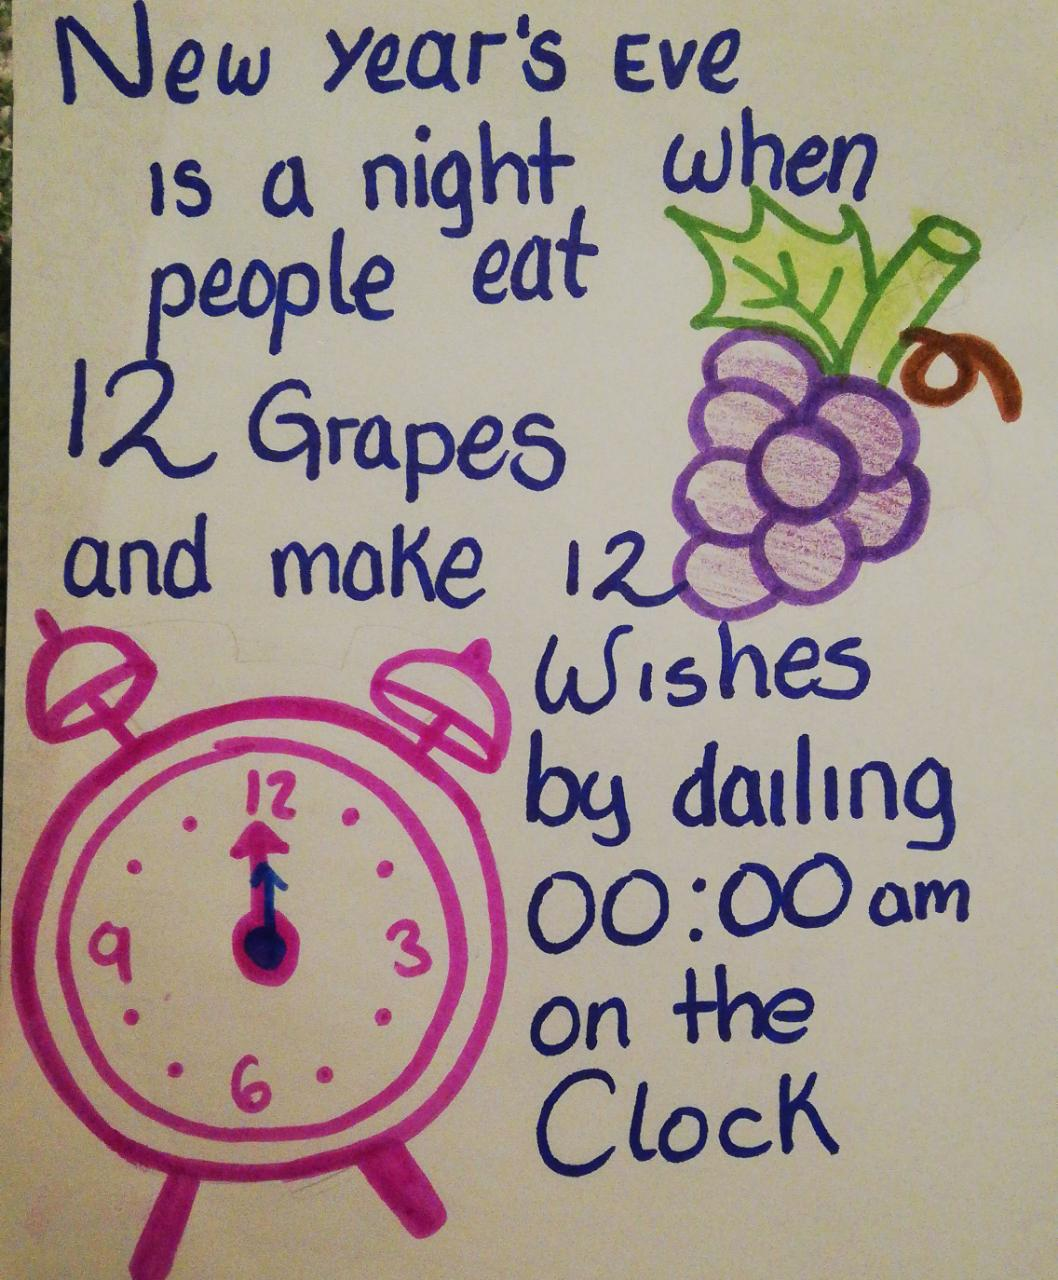 New Year's Eve
is a night when
people eat
12 Grapes
and make 12
Wishes
by dailing
00:00 am
on the
Clock
12
9 3
6